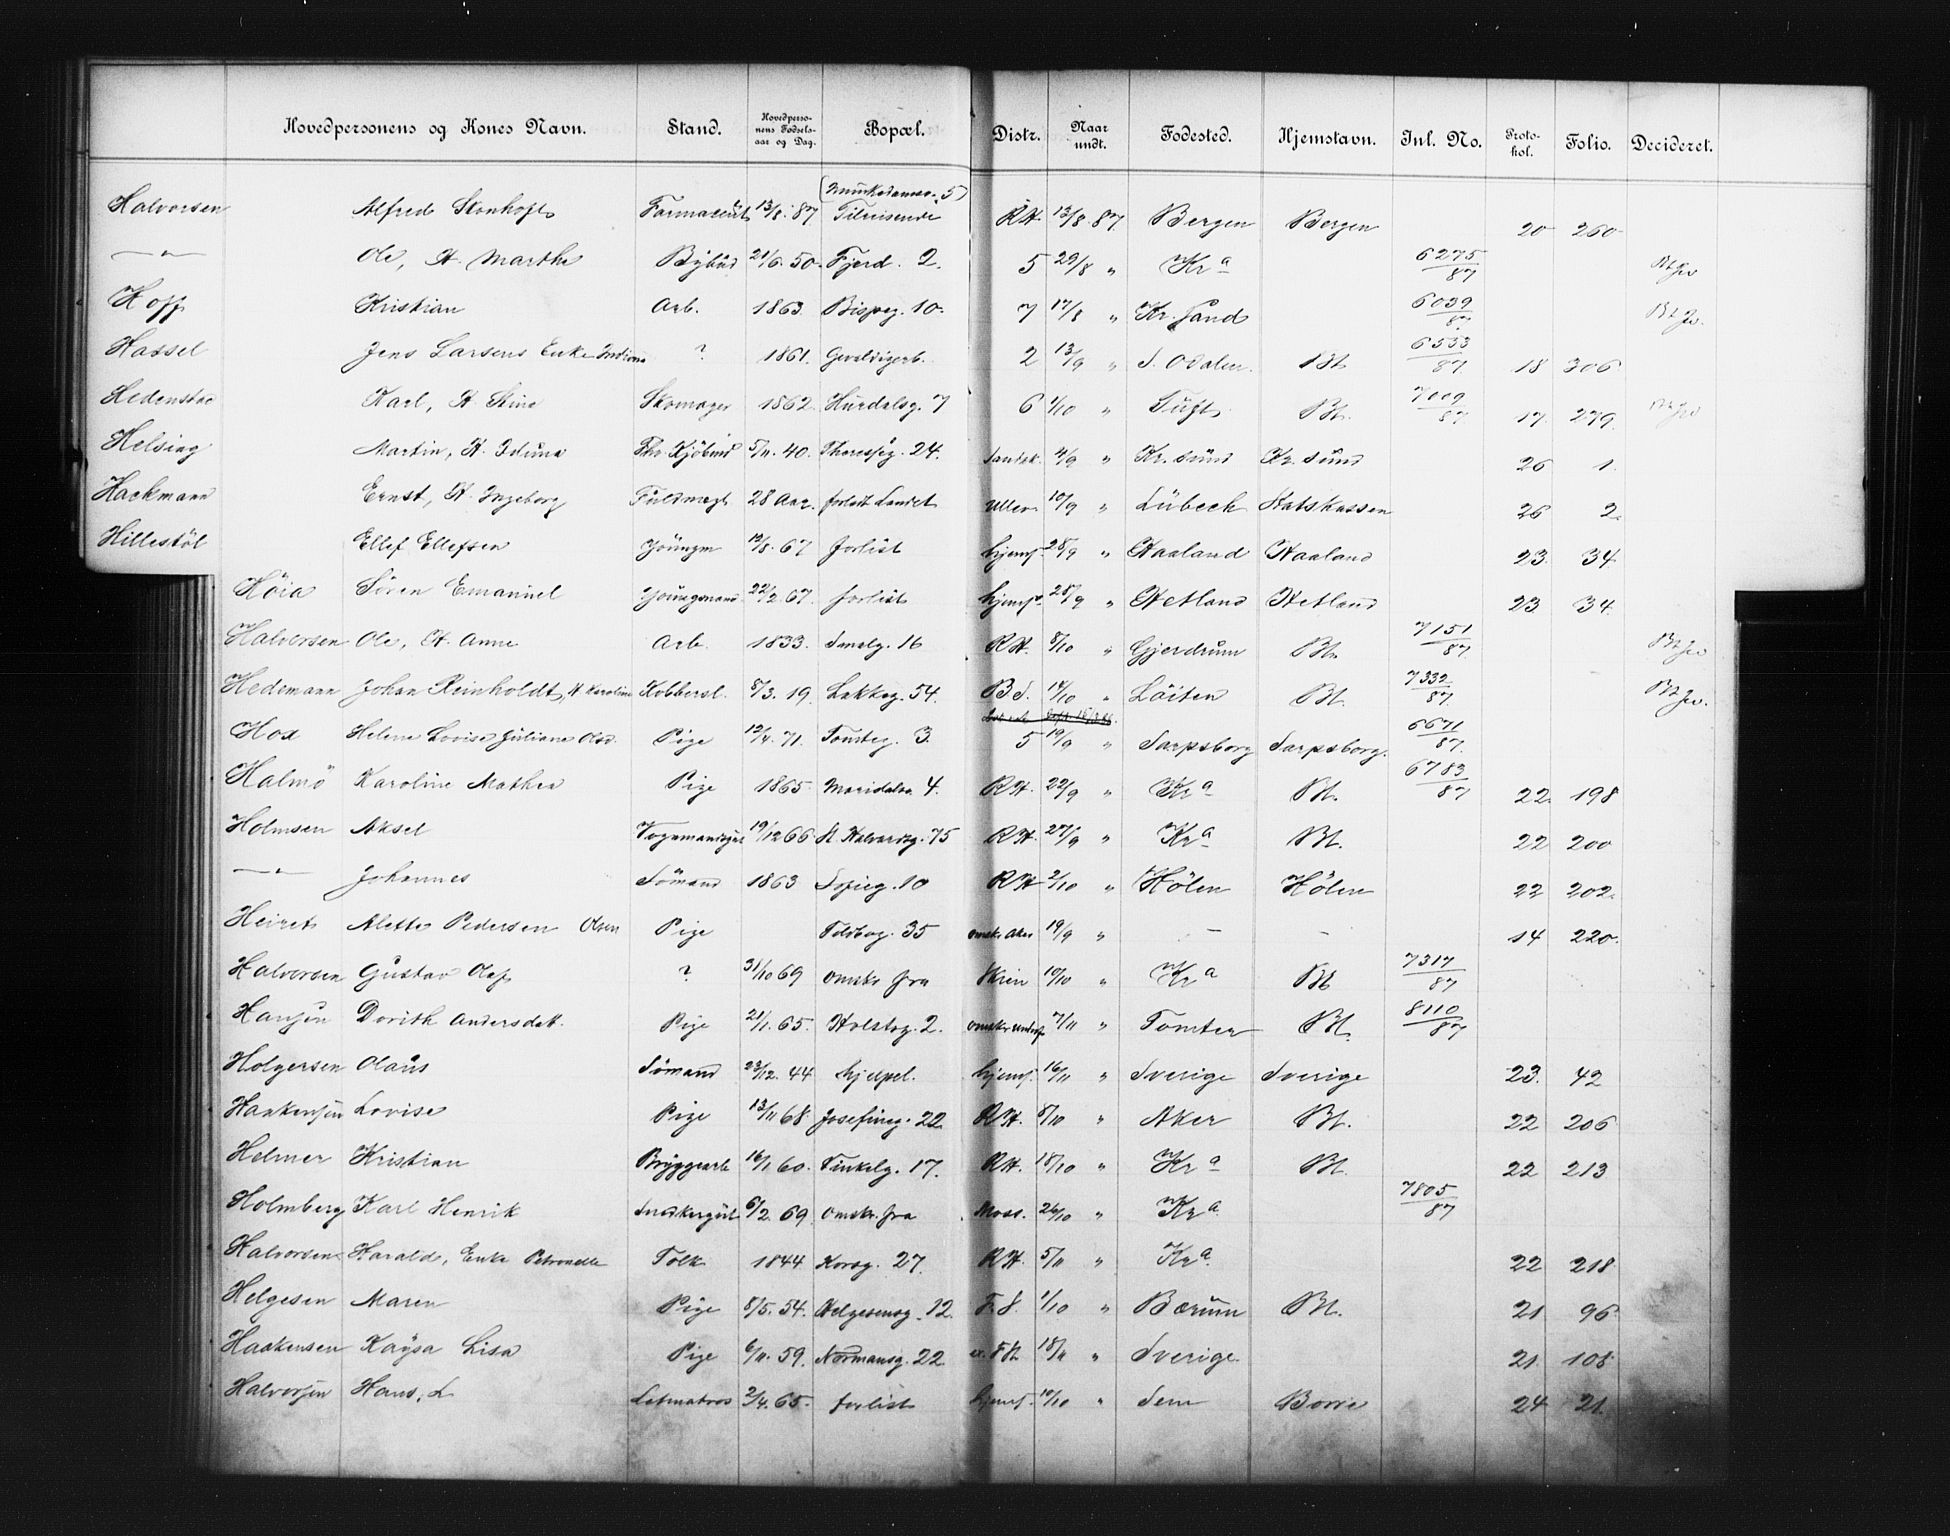 Hovedpersonens og Kones Navn. Stand. Hovedperso-nens Fødsels-aar og Dag. Bopæl. Distr. Naar undt. Fødested. Hjemstavn. Inl. No. Proto-kol. Folio. Decideret.
Halvorsen Alfred Skonhoft Farmaceut 13/8. 87 (Munkedamsv. 5) Tilreisende R.H. 13/8. 87 Bergen Bergen 20 260
—"— Ole, H. Marthe Bybud 21/6. 50. Fjerd. 2. 5 29/8 " Kra 6275/87
Hoff Kristian Arb. 1863. Bispeg. 10. 7 17/8 " Kr. sand 6039/87
Hassel Jens Larsens Enke ? 1861. 2 13/9 " S. Odalen Bt 6533/87 18 306
Karl, H. Stine Skomager 1862. Hurdalsg. 7 6 1/10 " Tuft Bt. 7009/87 17. 279.
Helsing Martin, H. Iduna 5/11. 40. Theresesg. 24. 4/9 " Kr. sund Kr. sund 26 1.
Hackmann Ernst, H. Ingeborg Fuldmægt 28 Aar. forladt Landet Ullev. 10/9 " Lübeck Statskassen 26 2.
Hillestöl Ellef Ellefsen Youngm 12/8. 67 forlist hjemf. 28/9 " Haaland Haaland 23. 34
Höia Sören Emanuel Youngmand 22/2. 67. forlist hjemf. 28/9 " Hetland Hetland 23. 34.
Halvorsen Ole, H. Anne Arb. 1833. Smalg. 16 R.H. 8/10 " Gjerdrum Bt. 7151/87
Hedemann Johan Reinholdt, H. Karoline Kobbersl. 8/3. 19. Lakkeg. 54. B.S. 14/10 " Löiten Bt. 7332/87
Hox Helene Lovise Juliane Olsd. Pige 12/4. 71. Tomteg. 3. 5 19/9 " Sarpsborg Sarpsborg. 6671/87.
Halmö Karoline Mathea Pige 1865. Maridalsv. 4. R.H. 22/9 " Kra Bt. 6783/87 22. 198
Holmsen Aksel Vognmandsgut 19/12 66. St. Halvardsg. 75 R.H. 27/9 " Kra Bt. 22 200
—"— Johannes Sömand 1863 10 R.H. 2/10 " Hölen Hölen 22 202.
Alette Pedersen Olsen Pige Toldbog. 35 omsk. Aker 19/9 " — — 14 220.
Halvorsen Gustav Olaf ? 31/10 69 omskr fra Skien 10/10 " Kra Bt 7317/87
Hansen Dorith Andersdat. Pige 21/1. 65. Holstsg. 2. 7/11 " Tomter Bt. 8110/87
Holgersen Olaus Sömand 23/12. 44 hjelpel. hjemf. 16/11 " Sverige Sverige 23. 42
Haakensen Lovise Pige 13/11 68. Josefineg. 22. R.H. 8/10 " Aker Bt. 22 206
Helmer Kristian Bryggearb 16/1 60. Finkelg. 17. R.H. 18/10 " Kra Bt. 22 213
Holmberg Karl Henrik Snedkergut 6/2. 69. omskr. fra Moss. 26/10 " Kra 7805/87
Halvorsen Harald, Enke Petronelle Tolk 1844 Korsg. 27. R.H. 5/11 " Kra. 22 218.
Helgesen Maren Pige 8/5. 54. Helgesensg. 12. 1/10 " Bærum Bt. 21 96
Haakensen Kaysa Lisa Pige 6/11. 59. Normansg. 22 18/11 " Sverige 21. 108
Halvorsen Hans, L Letmatros 2/4. 65. forlist hjemf. 10/10 " Sem Borre 24 21.